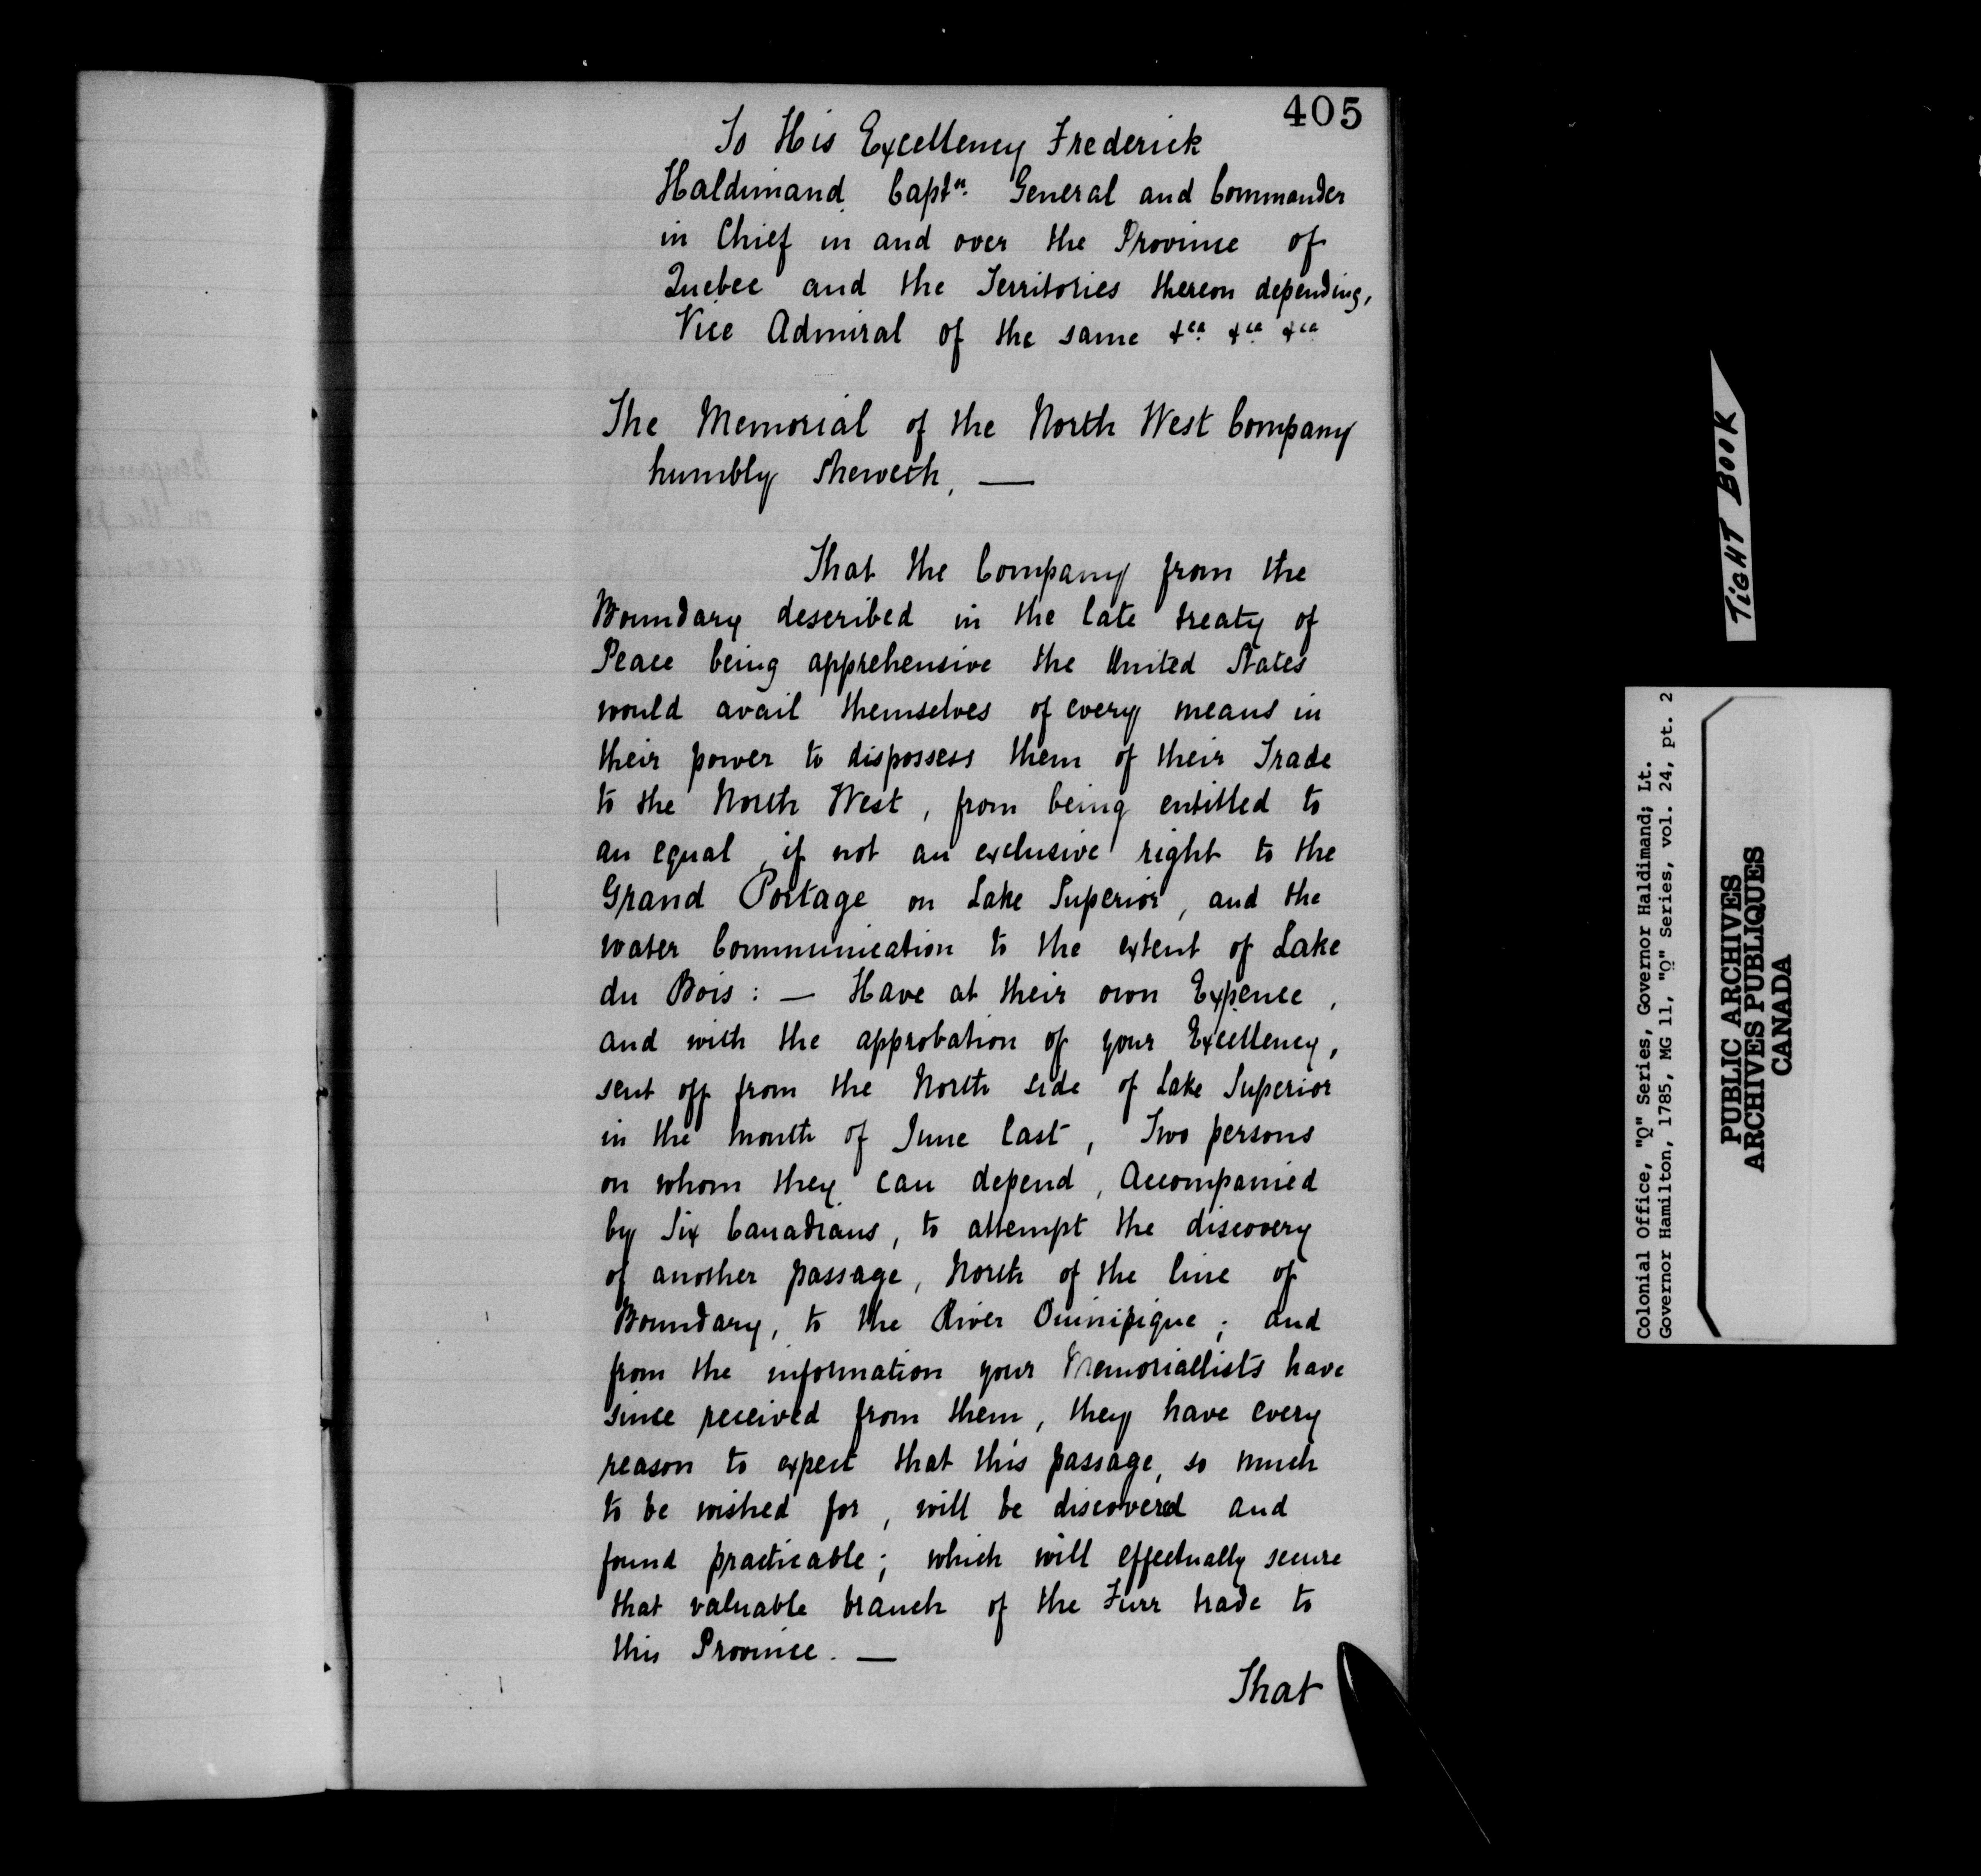 405
To His Excellency Frederick
Haldimand Captn. General and Commander
in Chief in and over the Province of
Quebec and the Territories thereon depending,
Vice Admiral of the same &ca &ca &ca
The Memorial of the North West Company
humbly Sheweth, —
That the Company from the
Boundary described in the late treaty of
Peace being apprehensive the United States
would avail themselves of every means in
their power to dispossess them of their Trade
to the North West, from being entitled to
an equal, if not an exclusive right to the
Grand Portage on Lake Superior, and the
water Communication to the extent of Lake
du Bois: — Have at their own Expence,
and with the approbation of your Excellency,
sent off from the North side of Lake Superior
in the month of June last, Two persons
on whom they can depend, Accompanied
by Six Canadians, to attempt the discovery
of another passage, North of the line of
Boundary, to the River Ouinipique; and
from the information your Memoriallists have
since received from them, they have every
reason to expect that this passage, so much
to be wished for, will be discovered and
found practicable; which will effectually secure
that valuable branch of the Furr trade to
this Province. —
That
TIGHT BOOK
Colonial Office, "Q" Series, Governor Haldimand; Lt.
Governor Hamilton, 1785, MG 11, "Q" Series, vol. 24, pt. 2
PUBLIC ARCHIVES
ARCHIVES PUBLIQUES
CANADA